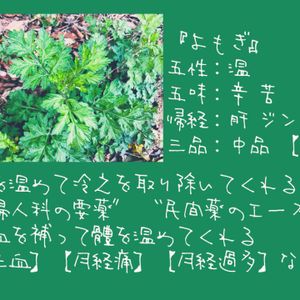 『よもぎ』
五性：温
五味：辛 苦
帰経：肝 ジン
三品：中品 【
を温めて冷えを取り除いてくれる
婦人科の要薬” “民間薬のエース
血を補って體を温めてくれる
血】【月経痛】【月経過多】な